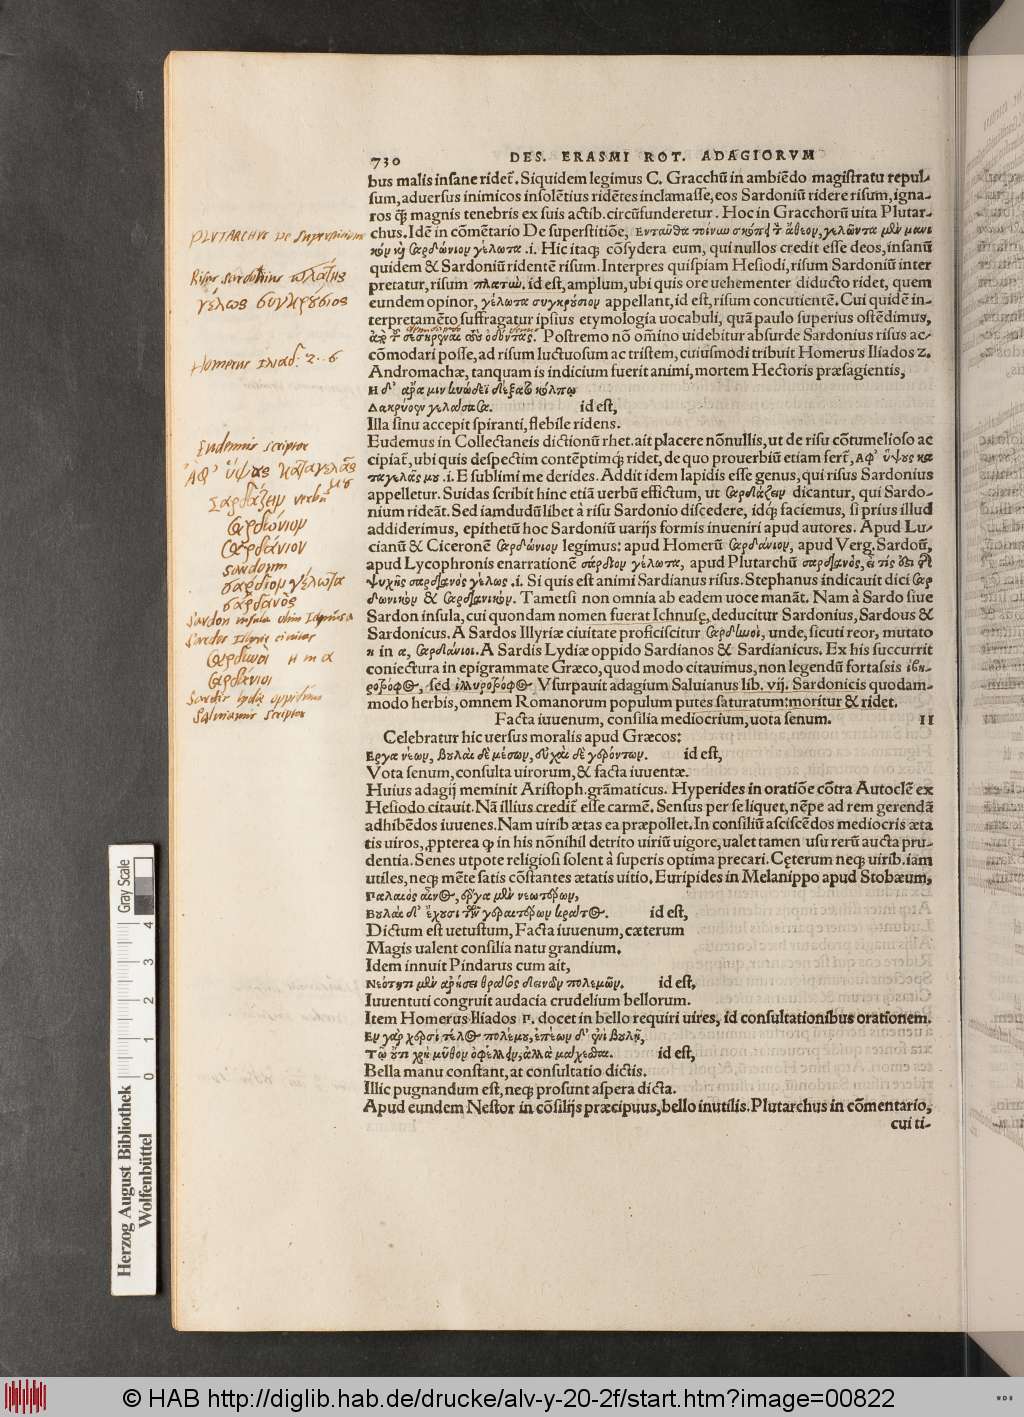 730 DES. ERASMI ROT. ADAGIORVM
bus malis insane ridet̃. Siquidem legimus C. Gracchũ in ambiẽdo magistratu repul-
sum, aduersus inimicos insolẽtius ridẽtes inclamasse, eos Sardoniũ ridere risum, igna-
ros q̃ magnis tenebris ex suis actib. circũfunderetur. Hoc in Gracchorũ uita Plutar-
chus. Idẽ in cõmẽtario De superstitiõe, Ενταῦθα τοίνυν σκόπει τ̃ ἄθεον, γελῶντα μὲν μανι
κὸν κỳ σαρδώνιον γέλωτα .i. Hic itaq; cõsydera eum, qui nullos credit esse deos, insanũ
quidem & Sardoniũ ridentẽ risum. Interpres quispiam Hesiodi, risum Sardoniũ inter
pretatur, risum πλατὺν. id est, amplum, ubi quis ore uehementer diducto ridet, quem
eundem opinor, γέλωτα συγκρούσιον appellant, id est, risum concutientẽ. Cui quidẽ in-
terpretamẽto suffragatur ipsius etymologia uocabuli, quã paulo superius ostẽdimus,
σεσηρέναι τοὺς ὀδόντας. Postremo nõ om̃ino uidebitur absurde Sardonius risus ac-
cõmodari posse, ad risum luctuosum ac tristem, cuiusmodi tribuit Homerus Iliados Z.
Andromachæ, tanquam is indicium fuerit animi, mortem Hectoris præsagientis,
Η δ' ἄρα μιν κυώδεϊ δέξατο κόλπῳ
Δακρύοεν γελάσασα. id est,
Illa sinu accepit spiranti, flebile ridens.
Eudemus in Collectaneis dictionũ rhet. ait placere nõnullis, ut de risu cõtumelioso ac
cipiat̃, ubi quis despectim contẽptimq; ridet, de quo prouerbiũ etiam fert̃, Αφ' ὕψους κα
ταγελᾷς μου .i. E sublimi me derides. Addit idem lapidis esse genus, qui risus Sardonius
appelletur. Suidas scribit hinc etiã uerbũ effictum, ut σαρδάζειν dicantur, qui Sardo-
nium rideãt. Sed iamdudũ libet à risu Sardonio discedere, idq; faciemus, si prius illud
addiderimus, epithetũ hoc Sardoniũ uarijs formis inueniri apud autores. Apud Lu-
cianũ & Ciceronẽ σαρδώνιον legimus: apud Homerũ σαρδάνιον, apud Verg. Sardoũ,
apud Lycophronis enarrationẽ σάρδιον γέλωτα, apud Plutarchũ σαρδιανὸς, εἴ τίς ὅδι
ψυχῆς σαρδιανὸς γέλως .i. Si quis est animi Sardianus risus. Stephanus indicauit dici σαρ
δωνικὸν & σαρδιανικὸν. Tametsi non omnia ab eadem uoce manãt. Nam à Sardo siue
Sardon insula, cui quondam nomen fuerat Ichnusę, deducitur Sardonius, Sardous &
Sardonicus. A Sardos Illyriæ ciuitate proficiscitur σαρδιωοὶ, unde, sicuti reor, mutato
η in α, σαρδιάνιοι. A Sardis Lydiæ oppido Sardianos & Sardianicus. Ex his succurrit
coniectura in epigrammate Græco, quod modo citauimus, non legendũ fortassis ἰβη-
ροτρόφος, sed ἰλλυροτρόφος. Vsurpauit adagium Saluianus lib. vij. Sardonicis quodam-
modo herbis, omnem Romanorum populum putes saturatum: moritur & ridet.
Facta iuuenum, consilia mediocrium, uota senum. II
Celebratur hic uersus moralis apud Græcos:
Εργα νέων, βουλαὶ δὲ μέσων, εὐχαὶ δὲ γερόντων. id est,
Vota senum, consulta uirorum, & facta iuuentæ.
Huius adagij meminit Aristoph. grãmaticus. Hyperides in oratiõe cõtra Autoclẽ ex
Hesiodo citauit. Nã illius credit̃ esse carmẽ. Sensus per se liquet, nẽpe ad rem gerendã
adhibẽdos iuuenes. Nam uirib ætas ea præpollet. In consiliũ asciscẽdos mediocris æta
tis uiros, ꝓpterea ꝙ in his nõnihil detrito uiriũ uigore, ualet tamen usu rerũ aucta pru-
dentia. Senes utpote religiosi solent à superis optima precari. Cęterum neq; uirib. iam
utiles, neq; mẽte satis cõstantes ætatis uitio, Euripides in Melanippo apud Stobæum,
Παλαιὸς αἶνος, ἔργα μὲν νεωτέρων,
Βουλαὶ δ' ἔχουσι τῶν γεραιτέρων κράτος. id est,
Dictum est uetustum, Facta iuuenum, cæterum
Magis ualent consilia natu grandium.
Idem innuit Pindarus cum ait,
Νεότητι μὲν ἀρήγει θράσος δεινῶν πολεμῶν. id est,
Iuuentuti congruit audacia crudelium bellorum.
Item Homerus Iliados Π. docet in bello requiri uires, id consultationibus orationem.
Εν γὰρ χερσὶ τέλος πολέμου, ἐπέων δ' ἐνὶ βουλῇ,
Τῷ οὔτι χρὴ μῦθον ὀφέλλειν, ἀλλὰ μάχεσθαι. id est,
Bella manu constant, at consultatio dictis.
Illic pugnandum est, neq; prosunt aspera dicta.
Apud eundem Nestor in cõsilijs præcipuus, bello inutilis. Plutarchus in cõmentario,
cui ti-
PLUTARCHUS De Superstitione
Risus Sardonius πλατὺς
γέλως συγκρούσιος
Homerus Iliad. Z. 6
Eudemus scriptor
Αφ' ὕψους καταγελᾷς
μου
Σαρδάζειν verbũ
σαρδώνιον
σαρδάνιον
sardoum
σάρδιον γέλωτα
σαρδανὸς
Sardon insula olim Ichnusa
Sardos Illyriae civitas
σαρδιωοὶ η in α
σαρδιάνιοι
Sardis Lydię oppidum
Salvianus scriptor
Gray Scale
4
3
2
1
0
Herzog August Bibliothek
Wolfenbüttel
© HAB http://diglib.hab.de/drucke/alv-y-20-2f/start.htm?image=00822